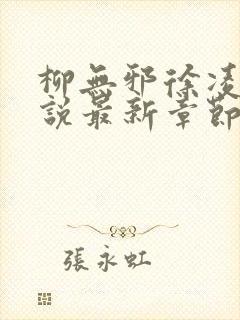 柳無邪徐凌
說最新章節
張永虹